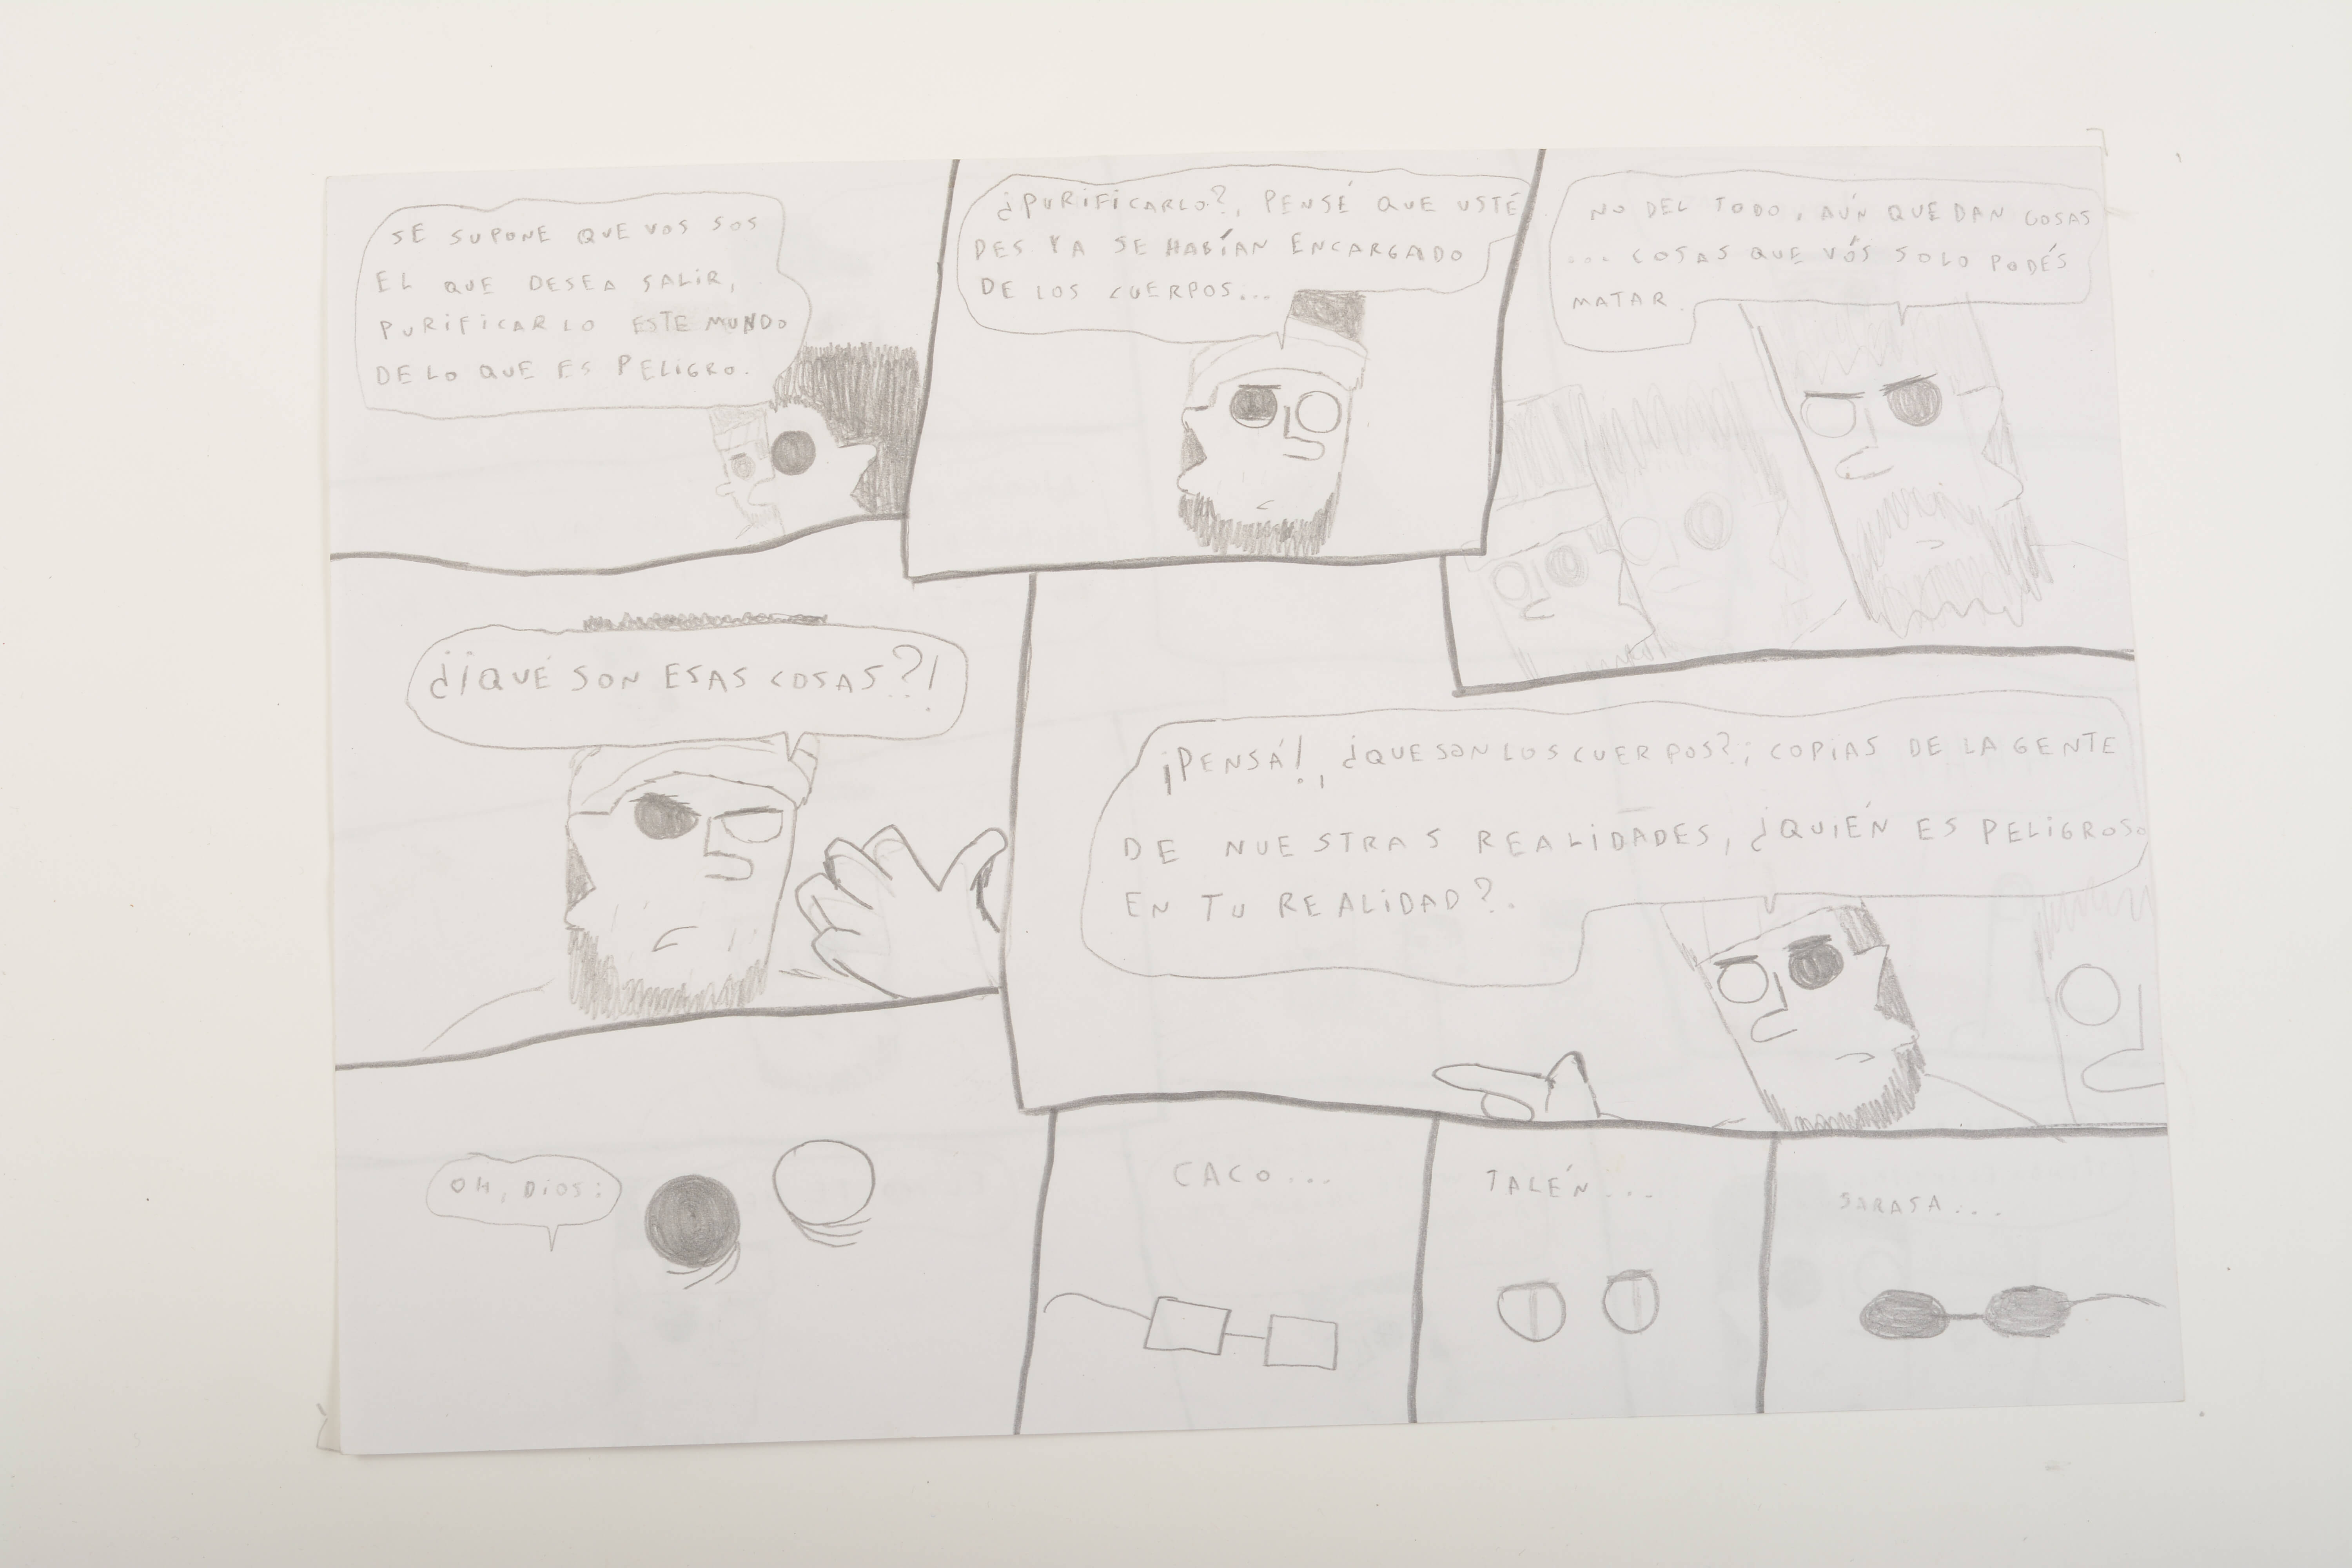 SE SUPONE QUE VOS SOS
EL QUE DESEA SALIR,
PURIFICARLO ESTE MUNDO
DE LO QUE ES PELIGRO.
¿PURIFICARLO?, PENSÉ QUE USTE
DES YA SE HABÍAN ENCARGADO
DE LOS CUERPOS...
NO DEL TODO, AÚN QUEDAN COSAS
... COSAS QUE VÓS SOLO PODÉS
MATAR.
¿¡QUÉ SON ESAS COSAS?!
¡PENSÁ!, ¿QUE SON LOS CUERPOS?; COPIAS DE LA GENTE
DE NUESTRAS REALIDADES, ¿QUIÉN ES PELIGROSO
EN TU REALIDAD?.
OH, DIOS:
CACO...
TALÉN...
SARASA...